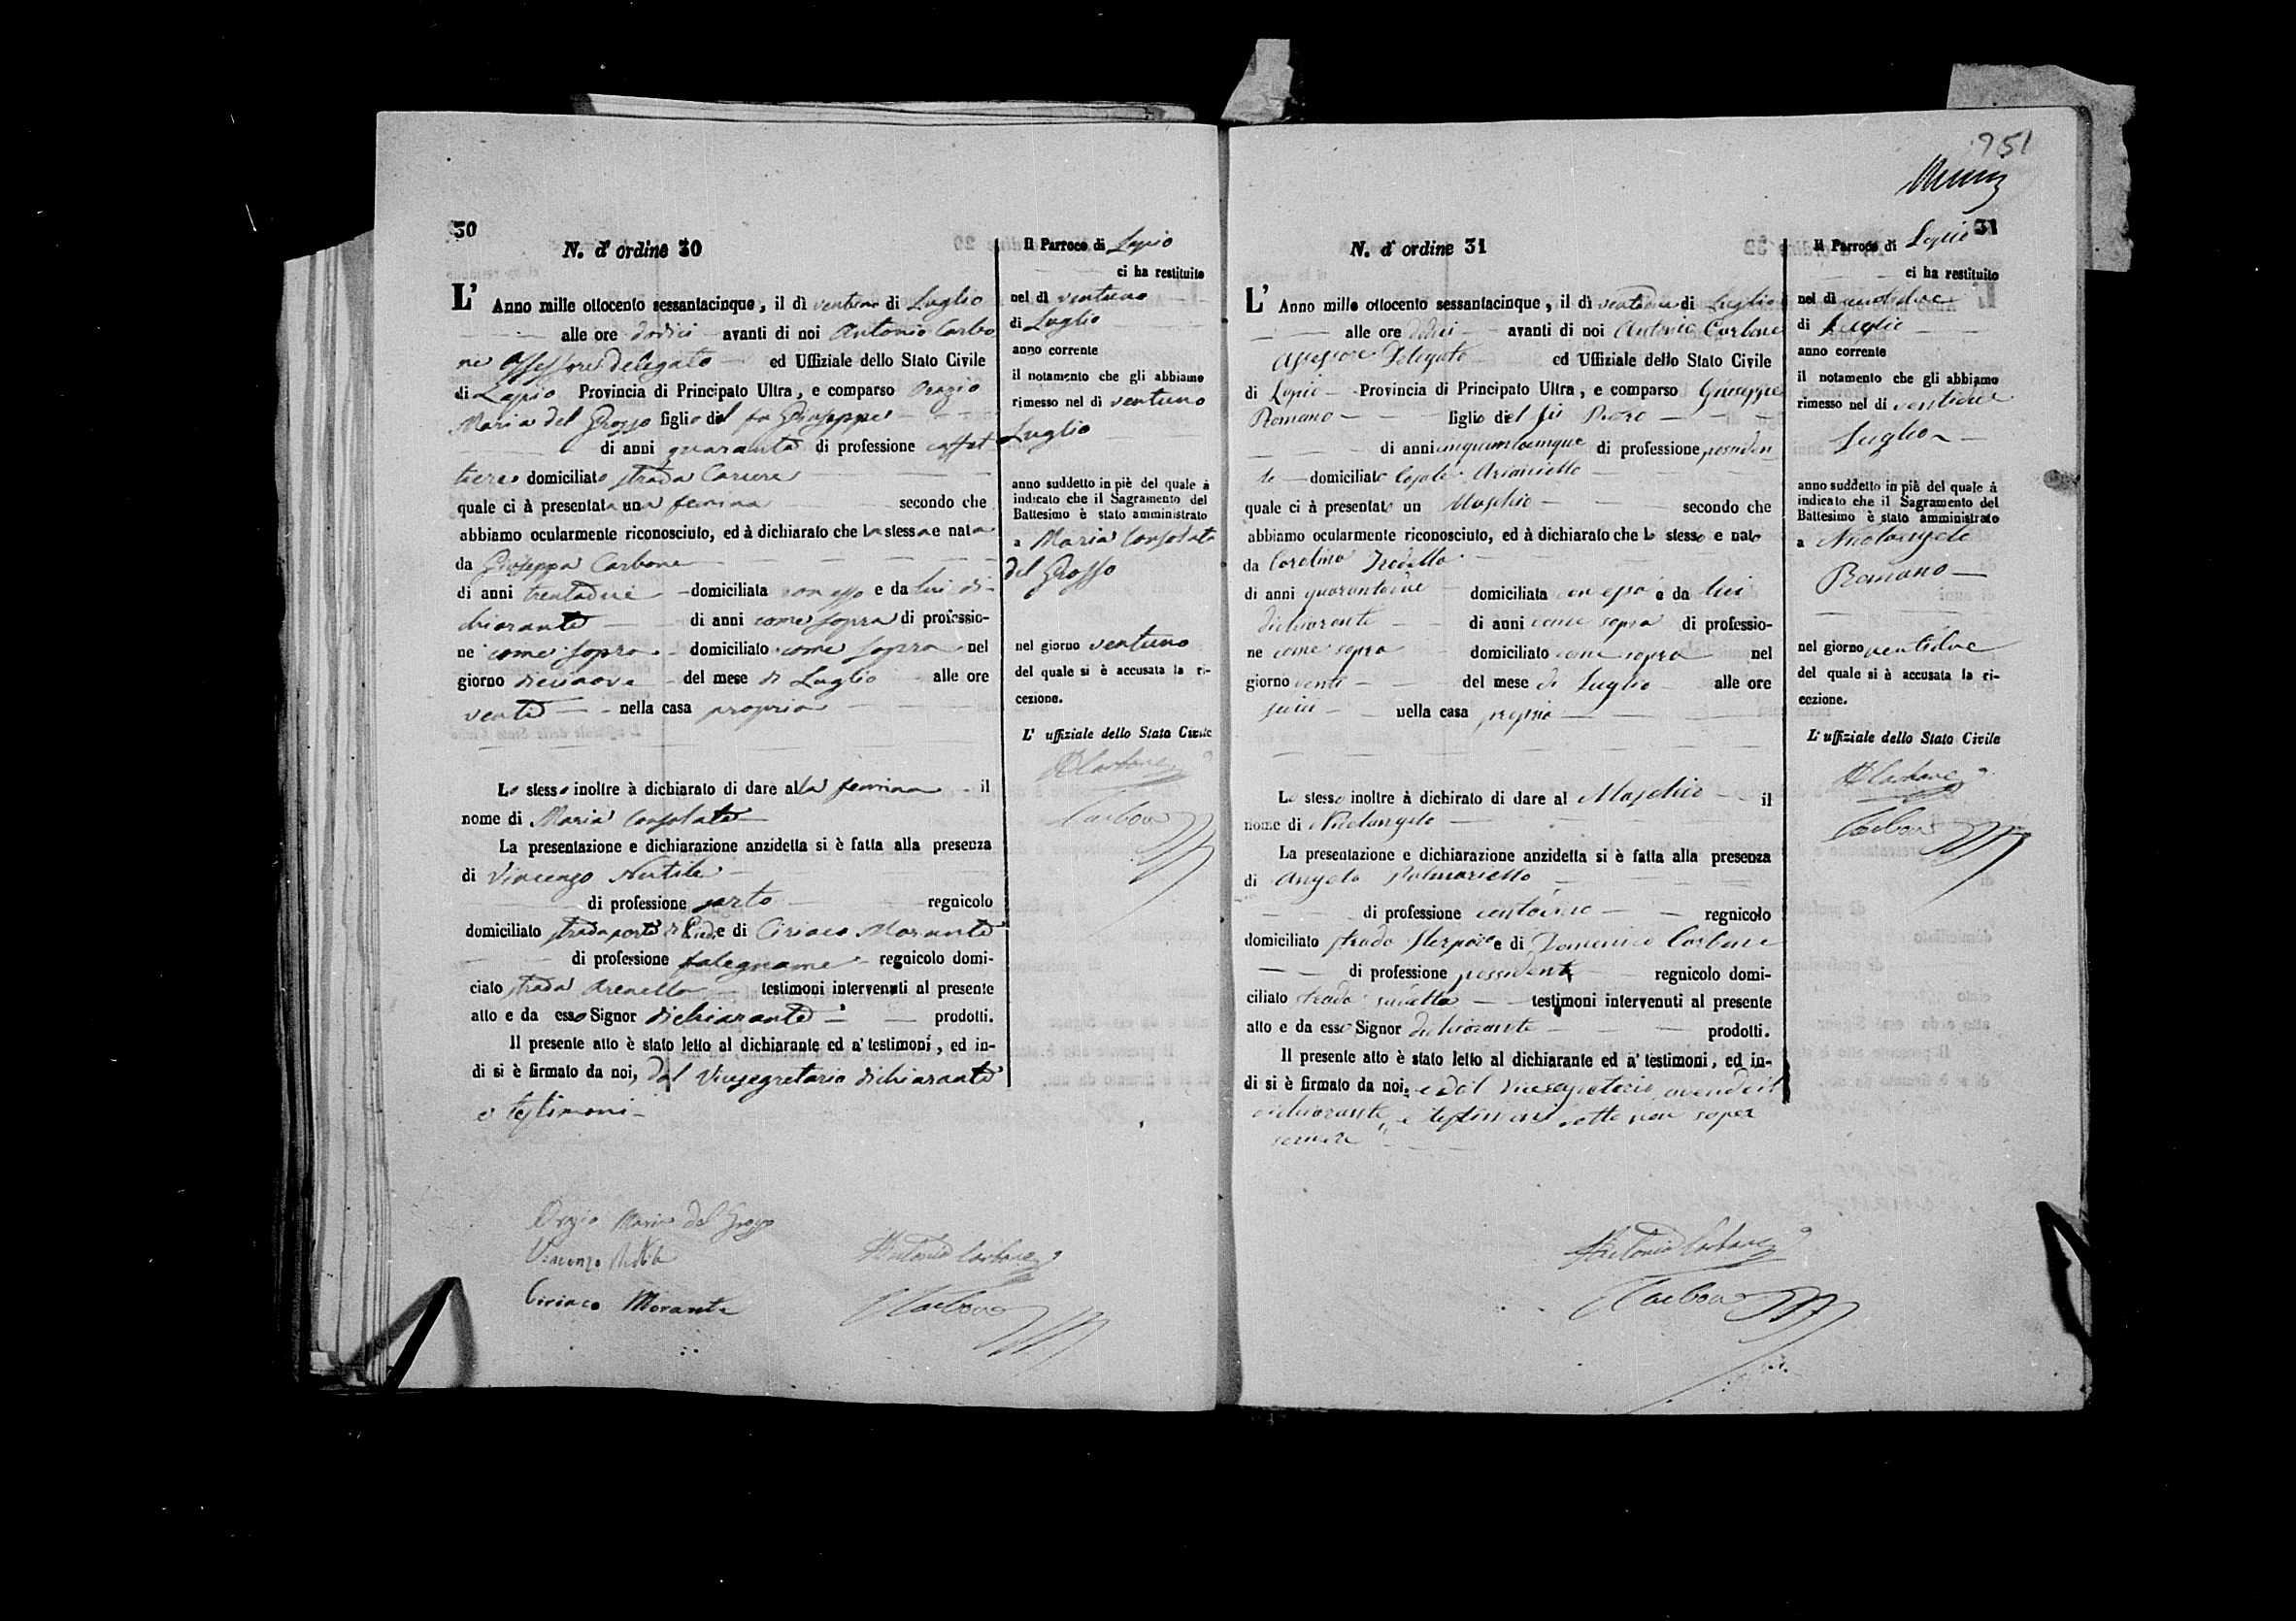 30
N. d' ordine 30
L' Anno mille ottocento sessantacinque, il dì ventuno di Luglio
alle ore dodici avanti di noi Antonio Carbo
ne Assessore delegato ed Uffiziale dello Stato Civile
di Lapio Provincia di Principato Ultra, e comparso Orazio
Maria del Grosso figlio del fu Giuseppe
di anni quaranta di professione caffet
tiere domiciliato strada Carcere
quale ci à presentata una femina secondo che
abbiamo ocularmente riconosciuto, ed à dichiarato che la stessa e nata
da Giuseppa Carbone
di anni trentadue domiciliata con esso e da lui di-
chiarante di anni come sopra di professio-
ne come sopra domiciliato come sopra nel
giorno diecinove del mese di Luglio alle ore
venti nella casa propria
Lo stesso inoltre à dichiarato di dare alla femina il
nome di Maria Consolata
La presentazione e dichiarazione anzidetta si è fatta alla presenza
di Vincenzo Nutile
di professione sarto regnicolo
domiciliato strada porta di e di Ciriaco Morante
di professione falegname regnicolo domi-
ciato strada Arenella testimoni intervenuti al presente
atto e da esso Signor dichiarante prodotti.
Il presente atto è stato letto al dichiarante ed a' testimoni, ed in-
di si è firmato da noi, dal Vicesegretario dichiarante
e testimoni
Orazio Maria del Grosso
Vincenzo Nutile
Ciriaco Morante
Antonio Carbone
Carbone
Il Parroco di Lapio
ci ha restituito
nel dì ventuno
di Luglio
anno corrente
il notamento che gli abbiamo
rimesso nel di ventuno
Luglio
anno suddetto in piè del quale à
indicato che il Sagramento del
Battesimo è stato amministrato
a Maria Consolata
del Grosso
nel giorno ventuno
del quale si è accusata la ri-
cezione.
L' uffiziale dello Stato Civile
A Carbone
Carbone
951
31
N. d' ordine 31
L' Anno mille ottocento sessantacinque, il dì ventidue di Luglio
alle ore dodici avanti di noi Antonio Carbone
Assessore Delegato ed Uffiziale dello Stato Civile
di Lapio Provincia di Principato Ultra, e comparso Giuseppe
Romano figlio del fù
di anni cinquantacinque di professione possiden
te domiciliato Casale Arianiello
quale ci à presentato un Maschio secondo che
abbiamo ocularmente riconosciuto, ed à dichiarato che lo stesso e nato
da Carolina
di anni quarantadue domiciliata con esso e da lui
dichiarante di anni come sopra di professio-
ne come sopra domiciliato come sopra nel
giorno venti del mese di Luglio alle ore
nella casa propria
Lo stesso inoltre à dichirato di dare al Maschio il
nome di Nicolangelo
La presentazione e dichiarazione anzidetta si è fatta alla presenza
di Angelo Palmariello
di professione contadino regnicolo
domiciliato strada e di Domenico Carbone
di professione possidente regnicolo domi-
ciliato strada sudetta testimoni intervenuti al presente
atto e da esso Signor dichiarante prodotti.
Il presente atto è stato letto al dichiarante ed a' testimoni, ed in-
di si è firmato da noi, e dal Vicesegretario avendo il
dichiarante, e testimoni detto non saper
scrivere
Antonio Carbone
Carbone
Il Parroco di Lapio
ci ha restituito
nel dì ventidue
di Luglio
anno corrente
il notamento che gli abbiamo
rimesso nel di ventidue
Luglio
anno suddetto in piè del quale à
indicato che il Sagramento del
Battesimo è stato amministrato
a Nicolangelo
Romano
nel giorno ventidue
del quale si è accusata la ri-
cezione.
L' uffiziale dello Stato Civile
A Carbone
Carbone